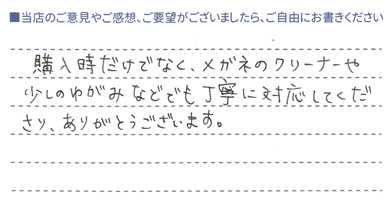 ■当店のご意見やご感想、ご要望がございましたら、ご自由にお書きください
購入時だけでなく、メガネのクリーナーや
少しのゆがみなどでも丁寧に対応してくだ
さり、ありがとうございます。